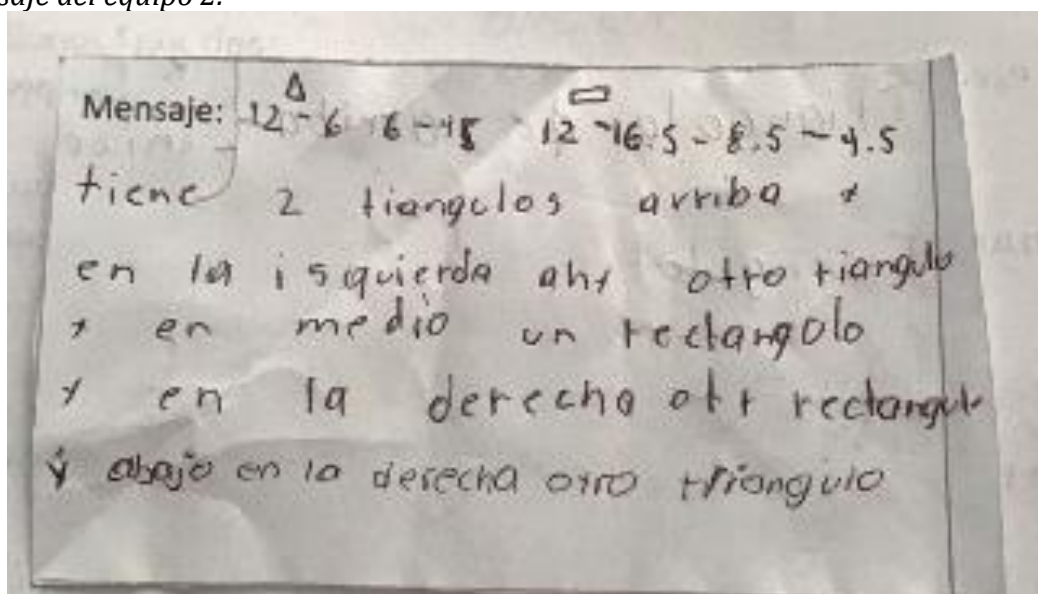 saje del equipo 2:
Mensaje: 12 - 6 6 - 45 12 - 16.5 - 8.5 - 4.5
tiene 2 tiangulos arriba y
en la isquierda ahy otro riangulo
y en medio un rectangolo
y en la derecha otr rectangul
y abajo en la derecha otro triangulo